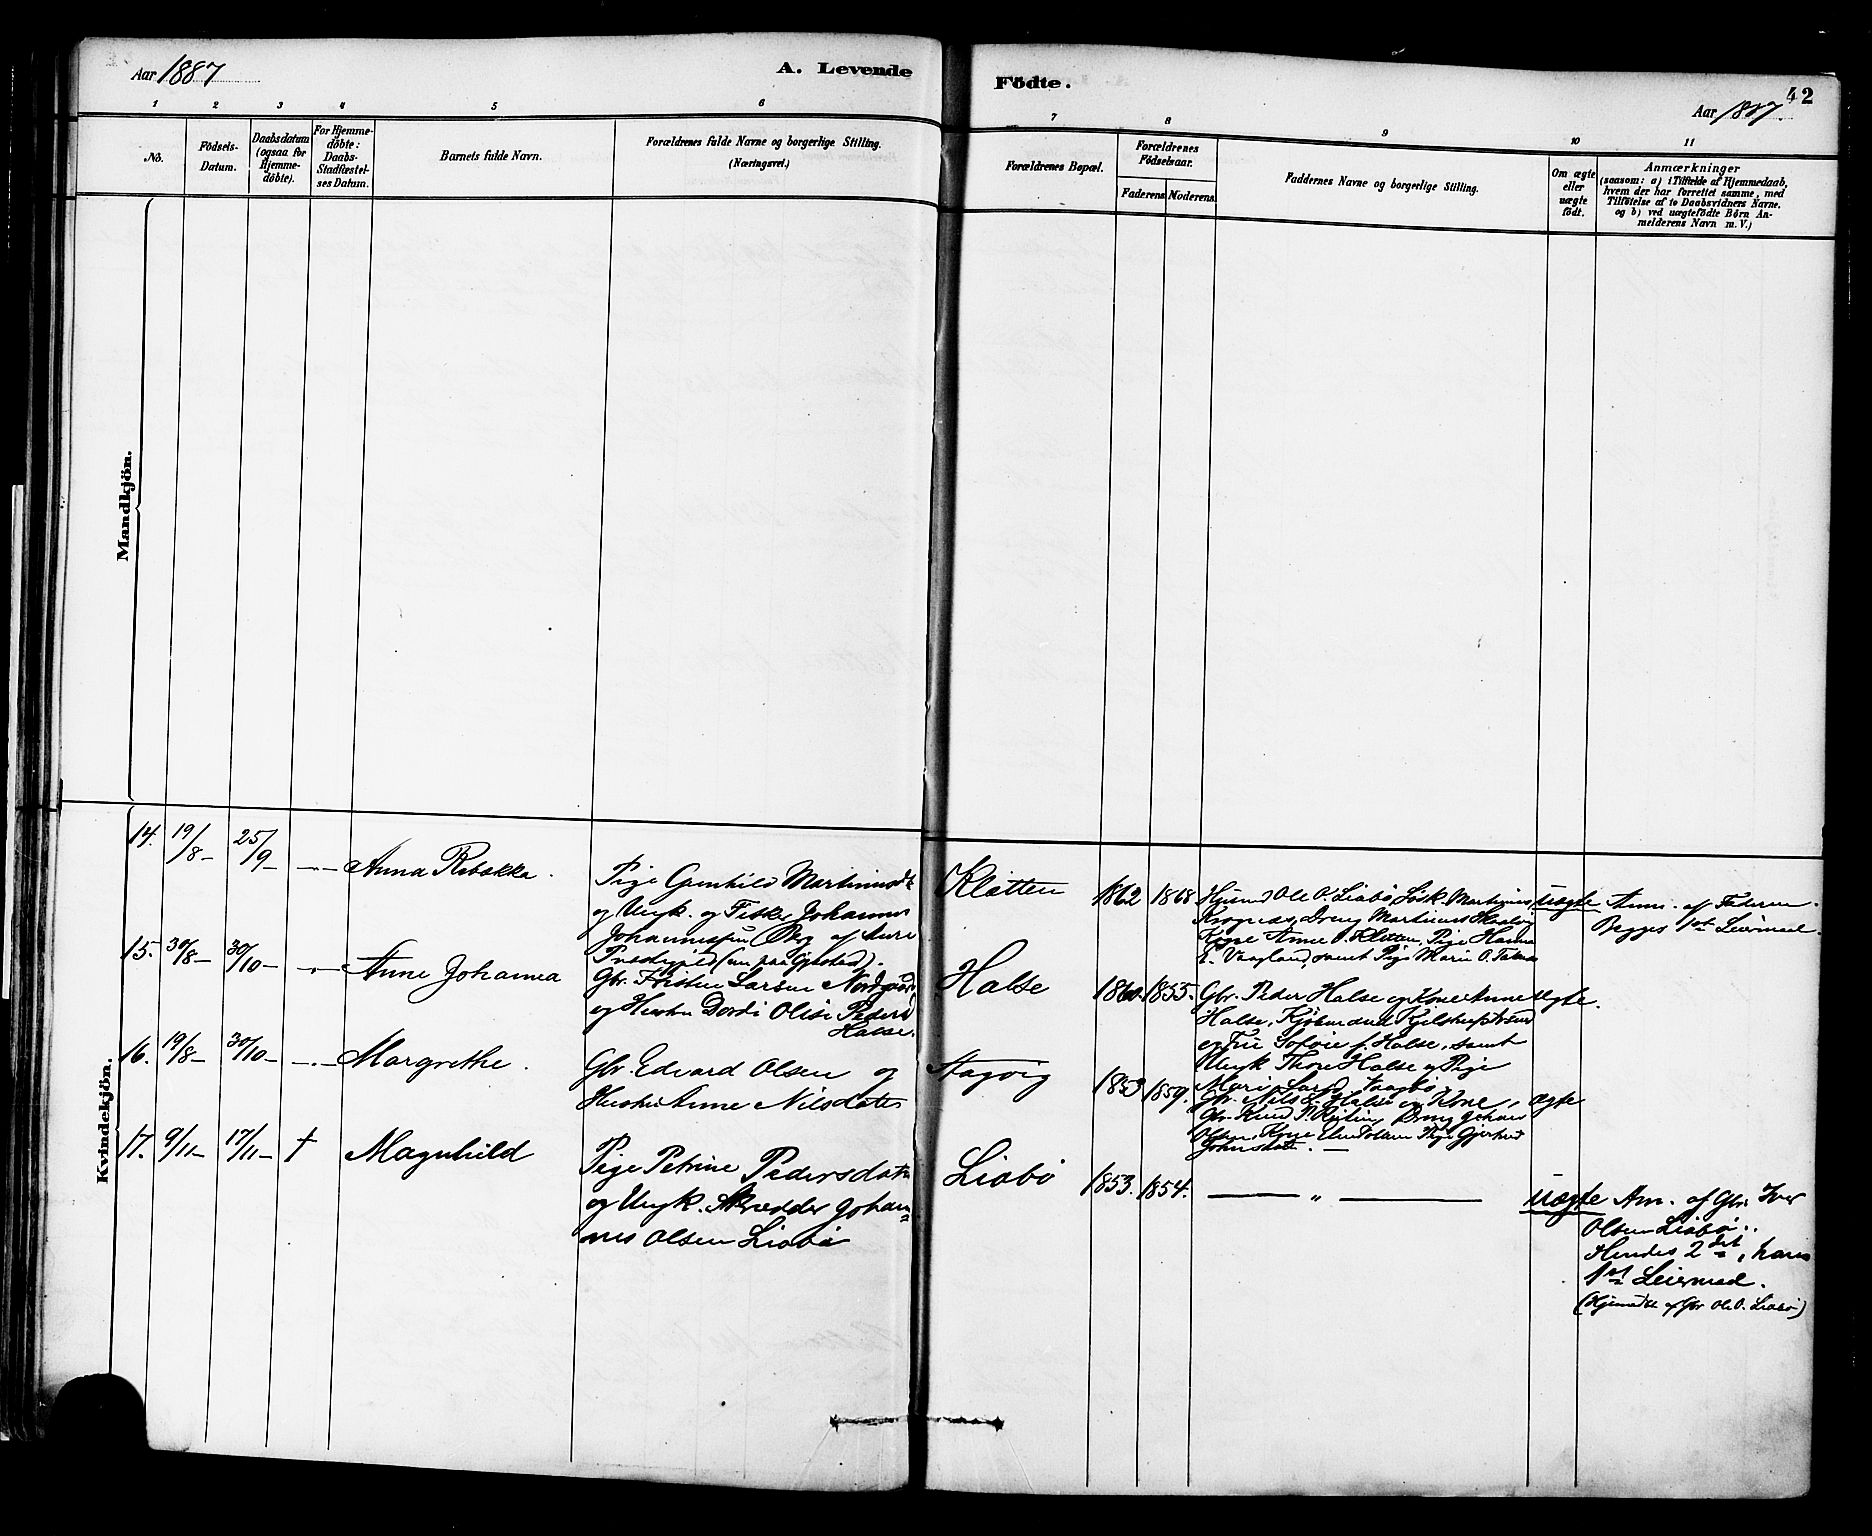 Aar 1887
A. Levende
Fødte.
42
Aar 1887.
1 2 3 4 5 6 7 8 9 10 11
No.
Fødsels-
Datum.
Daabsdatum
(ogsaa for
Hjemme-
døbte).
For Hjemme-
døbte:
Daabs-
Stadfæstel-
ses Datum.
Barnets fulde Navn.
Forældrenes fulde Navne og borgerlige Stilling.
(Næringsvei.)
Forældrenes Bopæl.
Forældrenes
Fødselsaar.
Faderens
Moderens
Faddernes Navne og borgerlige Stilling.
Om ægte
eller
uægte
født.
Anmærkninger
(saasom: a) i Tilfælde af Hjemmedaab,
hvem der har forrettet samme, med
Tilføielse af to Daabsvidners Navne.
og b) ved uægtefødte Børn An-
melderens Navn m. V.)
Mandkjön.
Kvindekjön.
14. 19/8 - 25/9 - Anna Rebekka.
Pige Gunhild Martinusdt
og Ungk. og Fisker Johannes
Johannessen af Aure
Præstegjeld
Kletten
1862 1868
Husmd Ole O. Liabø, Martinus
Krognæs, Dreng Martinus
Kone Anne O. Kletten, Pige Hanna
E. Vaagland, samt Pige Marie O.
uægte
Anm. af Faderen.
Begges 1st Leiermaal.
15. 30/8 - 30/10 - Anne Johanna
Gbr. Larsen
og Hustru Dordi Olise Peders
Halse.
Halse
1860. 1855.
Gbr. Peder Halse og Kone Anne
Halse, Kjøbmand
og Fru Sofie f. Halse, samt
Ungk Thore Halse og Pige
Mari Larsd. Vaagbø
ægte.
16. 19/8 - 30/10 - Margrethe.
Gbr. Edvard Olsen og
Hustru Anne Nilsdatter
Aagvig
1853 1859.
Gbr. Nils L. Halse og Kone,
Gbr. Knud Dreng Johan
Olsen, Kone Pige Gjertrud
Johnsdat.
ægte
17. 9/11 - 17/11 - † Magnhild
Pige Petrine Pedersdatt
og Ungk. Skrædder Johan-
nes Olsen Liabø
Liabø
1853. 1854.
— " —
uægte
Anm. af Gbr. Iver
Olsen Liabø.
Hendes 2det, hans
1st Leiermaal.
(Hjemdbt af Gbr Ole O. Liabø)